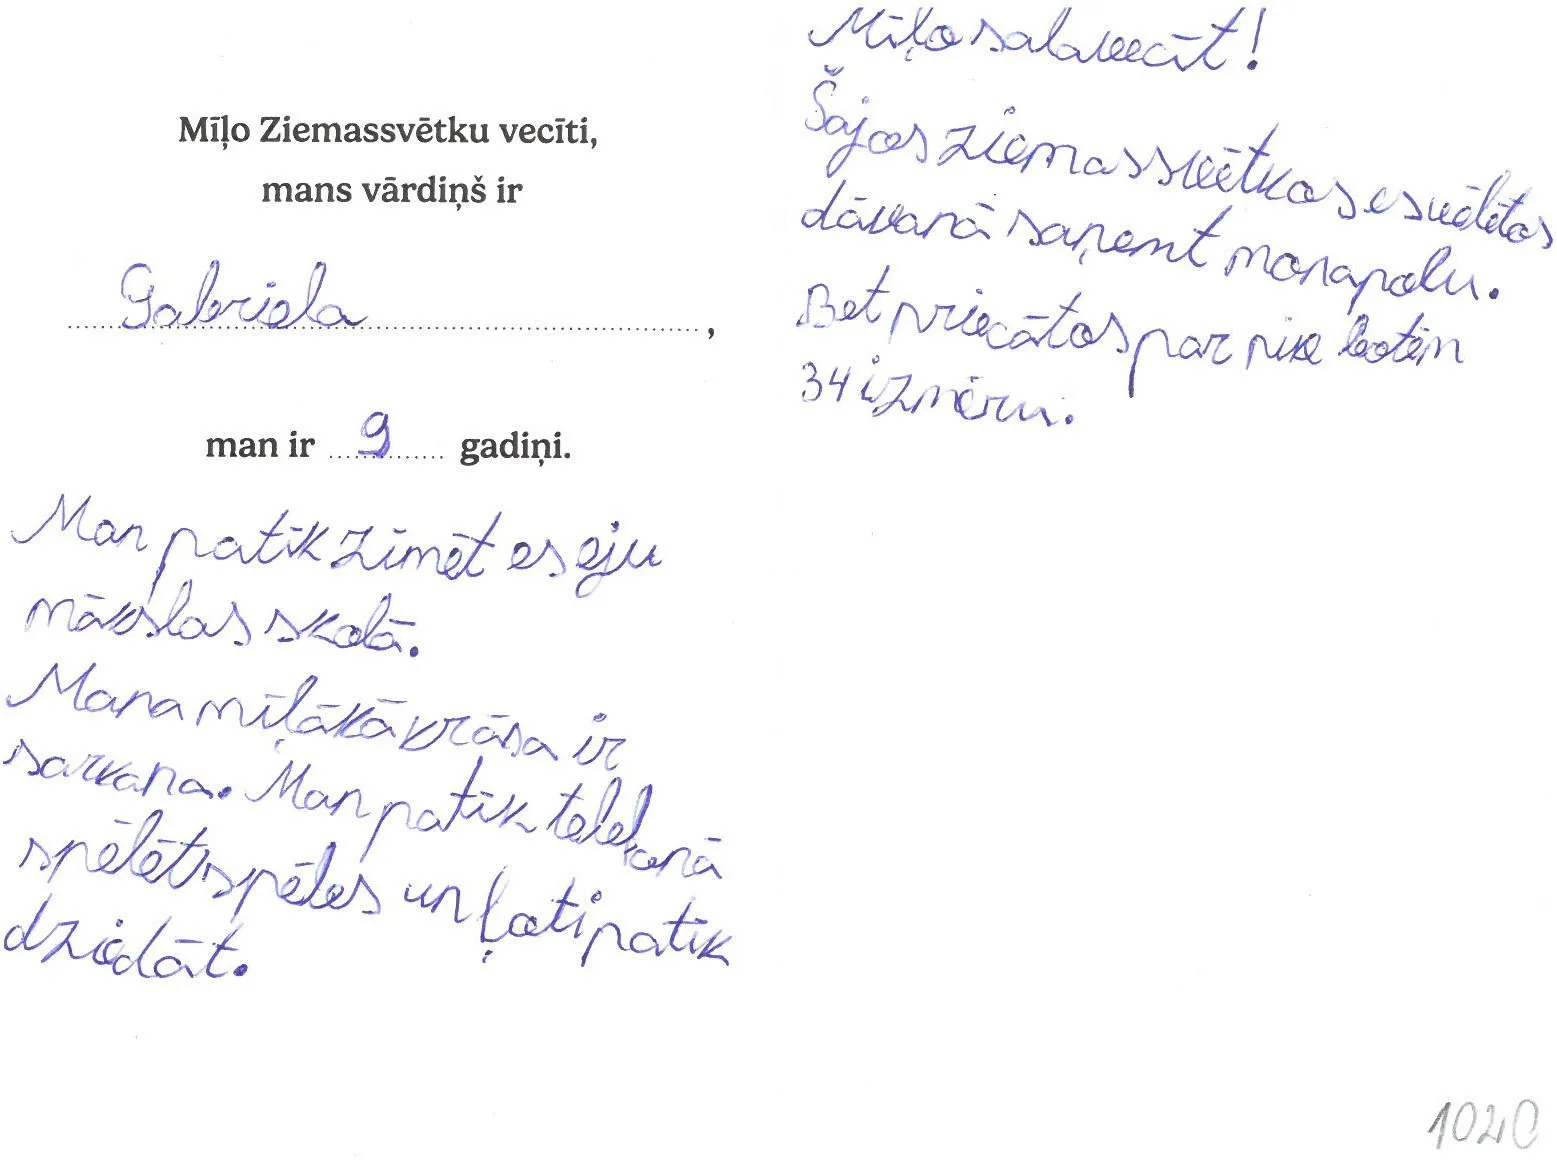 Mīļo Ziemassvētku vecīti,
mans vārdiņš ir
Gabriela,
man ir 9 gadiņi.
Man patīk zīmēt es eju
mākslas skolā.
Mana mīļākā krāsa ir
sarkana. Man patīk telefonā
spēlēt spēles un ļoti patīk
dziedāt.
Mīļo salavecīt!
Šajos ziemassvētkos es vēlētos
dāvanā saņemt monapolu.
Bet priecātos par nike botēm
34 izmēru.
1020